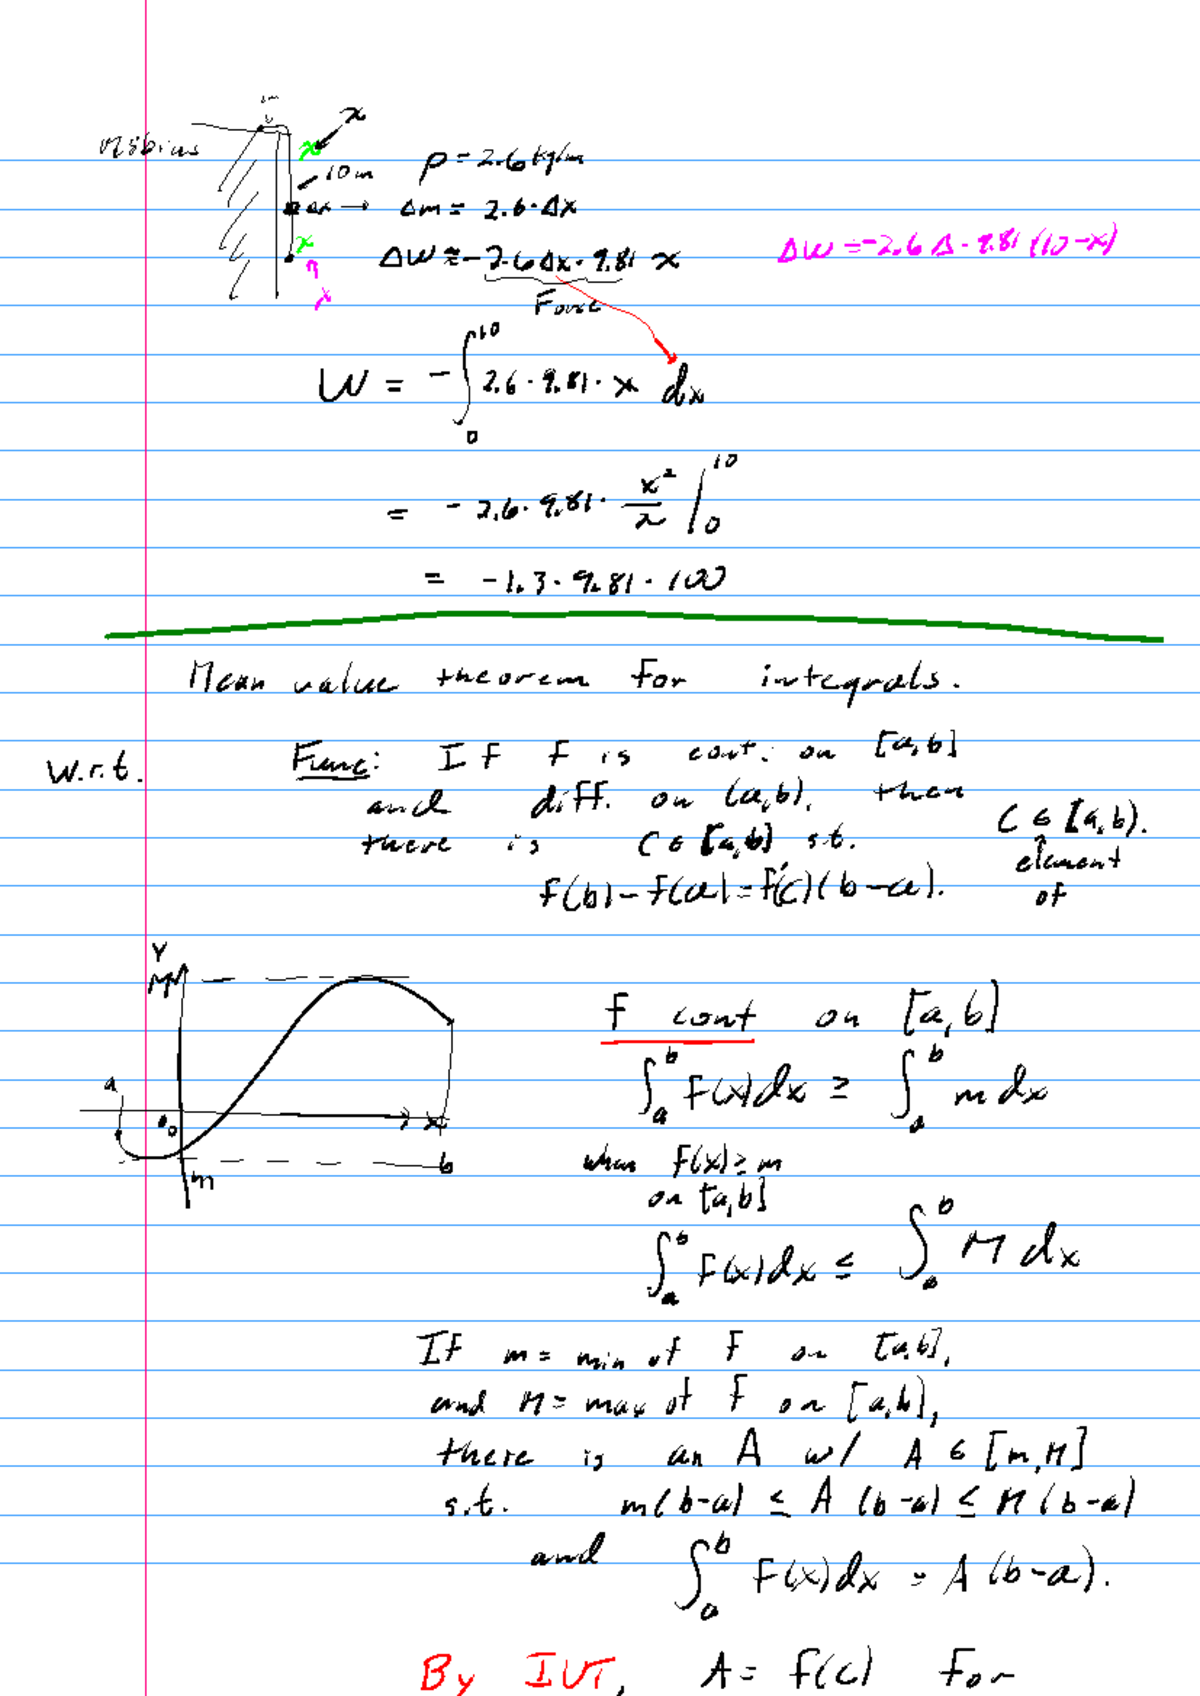 Möbius
x
x
10m
ρ = 2.6 kg/m
Δx → Δm = 2.6·Δx
x
ΔW ≈ -2.6Δx·9.81 x
ΔW = -2.6Δ·9.81(10-x)
x
Force
W = -∫₀¹⁰ 2.6·9.81·x dx
= -2.6·9.81·x²/2 |₀¹⁰
= -1.3·9.81·100
Mean value theorem for integrals.
W.r.t. Func: If f is cont. on [a,b]
and diff. on (a,b), then
there is c ∈ [a,b] s.t.
c ∈ [a,b).
element
of
f(b)-f(a)=f'(c)(b-a).
Y
M
a
0
x
b
m
f cont on [a,b]
∫ₐᵇ f(x)dx ≥ ∫ₐᵇ m dx
when f(x) ≥ m
on [a,b]
∫ₐᵇ f(x)dx ≤ ∫ₐᵇ M dx
If m = min of f on [a,b],
and M = max of f on [a,b],
there is an A w/ A ∈ [m,M]
s.t. m(b-a) ≤ A(b-a) ≤ M(b-a)
and ∫ₐᵇ f(x)dx = A(b-a).
By IVT, A = f(c) for